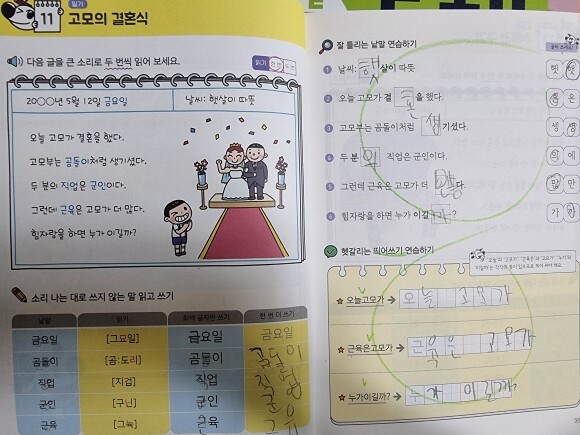 읽기
11 고모의 결혼식
다음 글을 큰 소리로 두 번씩 읽어 보세요.
읽기
20○○년 5월 12일 금요일
날씨: 햇살이 따뜻
오늘 고모가 결혼을 했다.
고모부는 곰돌이처럼 생기셨다.
두 분의 직업은 군인이다.
그런데 근육은 고모가 더 많다.
힘자랑을 하면 누가 이길까?
소리 나는 대로 쓰지 않는 말 읽고 쓰기
낱말 읽기 회색 글자만 쓰기 한 번 더 쓰기
금요일 [그묘일] 금요일 금요일
곰돌이 [곰:도리] 곰돌이 곰돌이
직업 [지겁] 직업 직업
군인 [구닌] 군인 군인
근육 [그뉵] 근육
잘 틀리는 낱말 연습하기
1 날씨: 햇살이 따뜻
2 오늘 고모가 결혼을 했다.
3 고모부는 곰돌이처럼 생기셨다.
4 두 분의 직업은 군인이다.
5 그런데 근육은 고모가 더
6 힘자랑을 하면 누가 이길까?
헷갈리는 띄어쓰기 연습하기
오늘고모가 → 오늘 고모가
근육은고모가 → 근육은 고모가
누가이길까? → 누가 이길까?